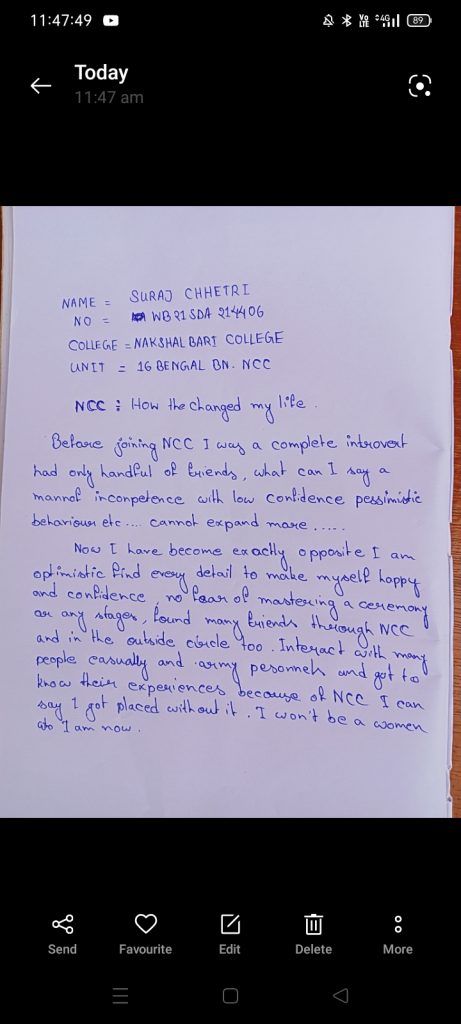 11:47:49
Vo LTE 4G 89
Today
11:47 am
NAME = SURAJ CHHETRI
NO = WB21SDA 214406
COLLEGE = NAKSHALBARI COLLEGE
UNIT = 16 BENGAL BN. NCC
NCC : How the changed my life.
Before joining NCC I was a complete introvert
had only handful of friends, what can I say a
mannof inconpetence with low confidence pessimistic
behaviour etc.... cannot expand more .....
Now I have become exactly opposite I am
optimistic find every detail to make myself happy
and confidence, no fear of mastering a ceremony
or any stages, found many friends through NCC
and in the outside circle too. Interact with many
people casually and army pesonneh and got to
know their experiences because of NCC I can
say I got placed without it. I won't be a women
who I am now.
Send Favourite Edit Delete More